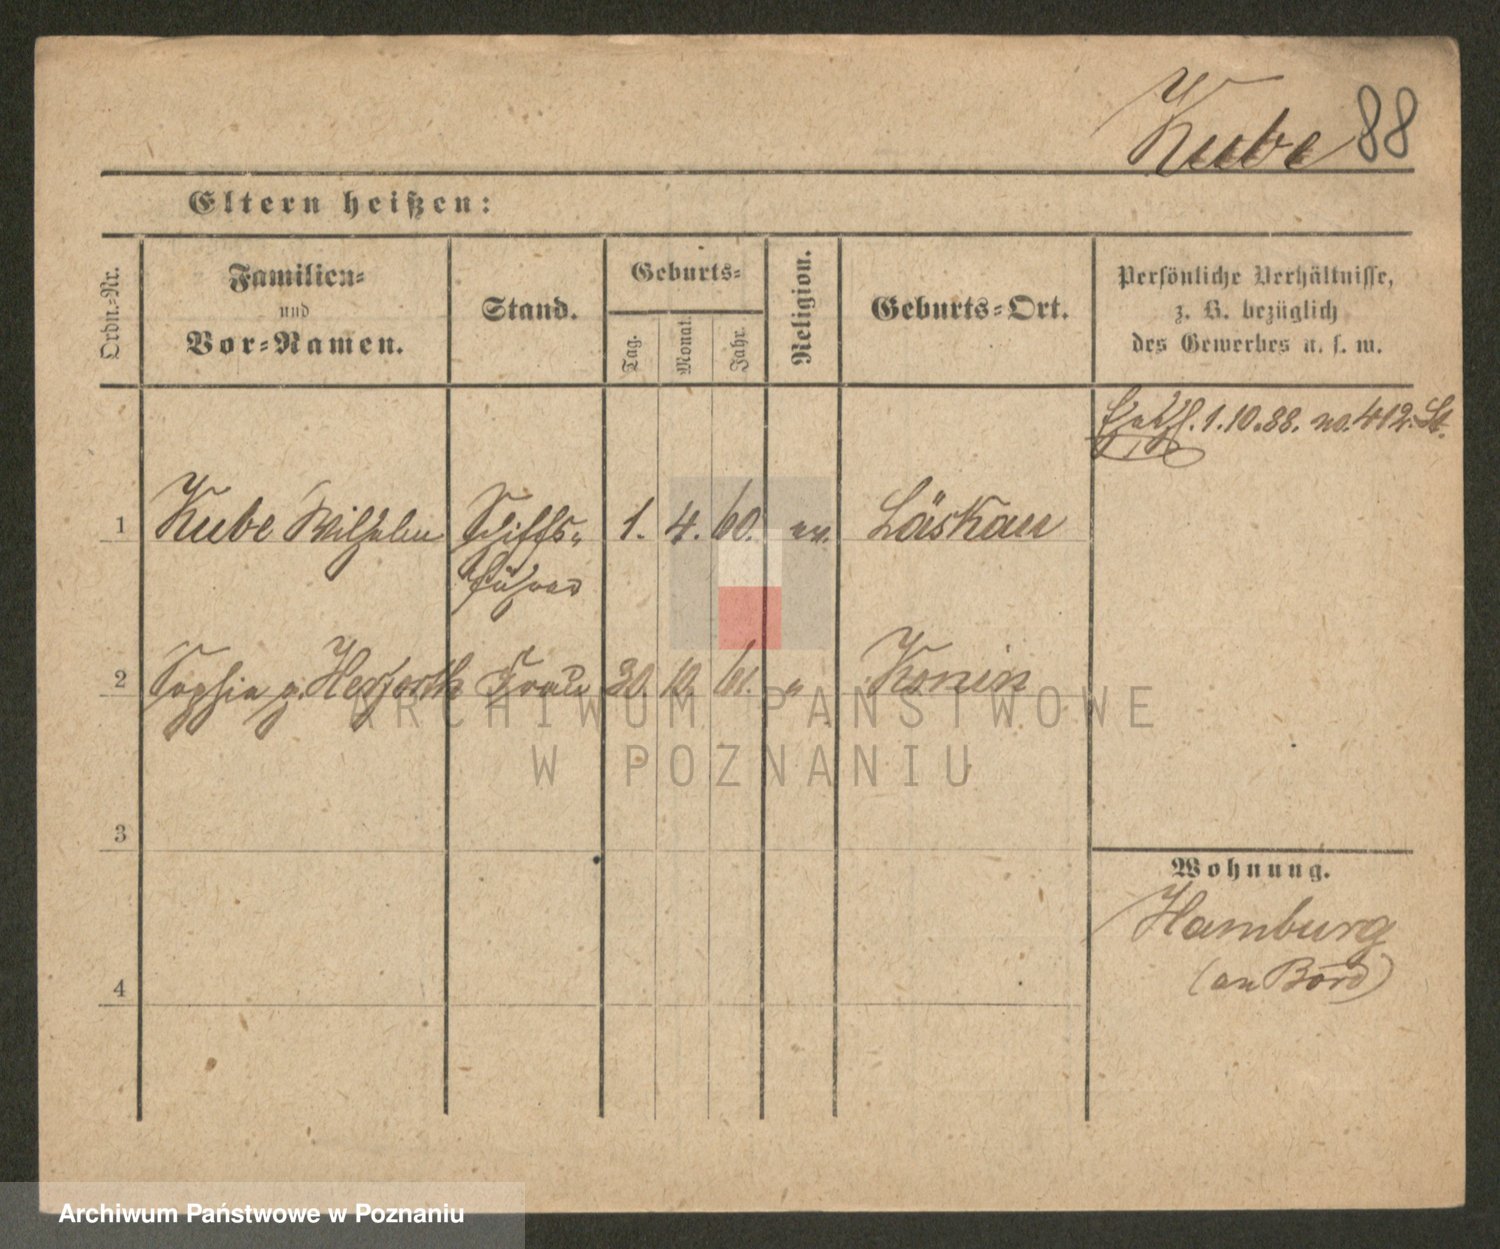 Kube 88
Eltern heißen:
Ordn.-Nr.
Familien-
und
Vor-Namen.
Stand.
Geburts-
Tag.
Monat.
Jahr.
Religion.
Geburts-Ort.
Persönliche Verhältnisse,
z. B. bezüglich
des Gewerbes u. s. w.
1.10.88. no. 412.
1 Kube Wilhelm Schiffs- 1. 4. 60. ev. Läskau
führer
2 Sophia g. Herforth Frau 30. 10. 61. " Konin
ARCHIWUM PAŃSTWOWE
W POZNANIU
3
Wohnung.
Hamburg
(an Bord)
4
Archiwum Państwowe w Poznaniu